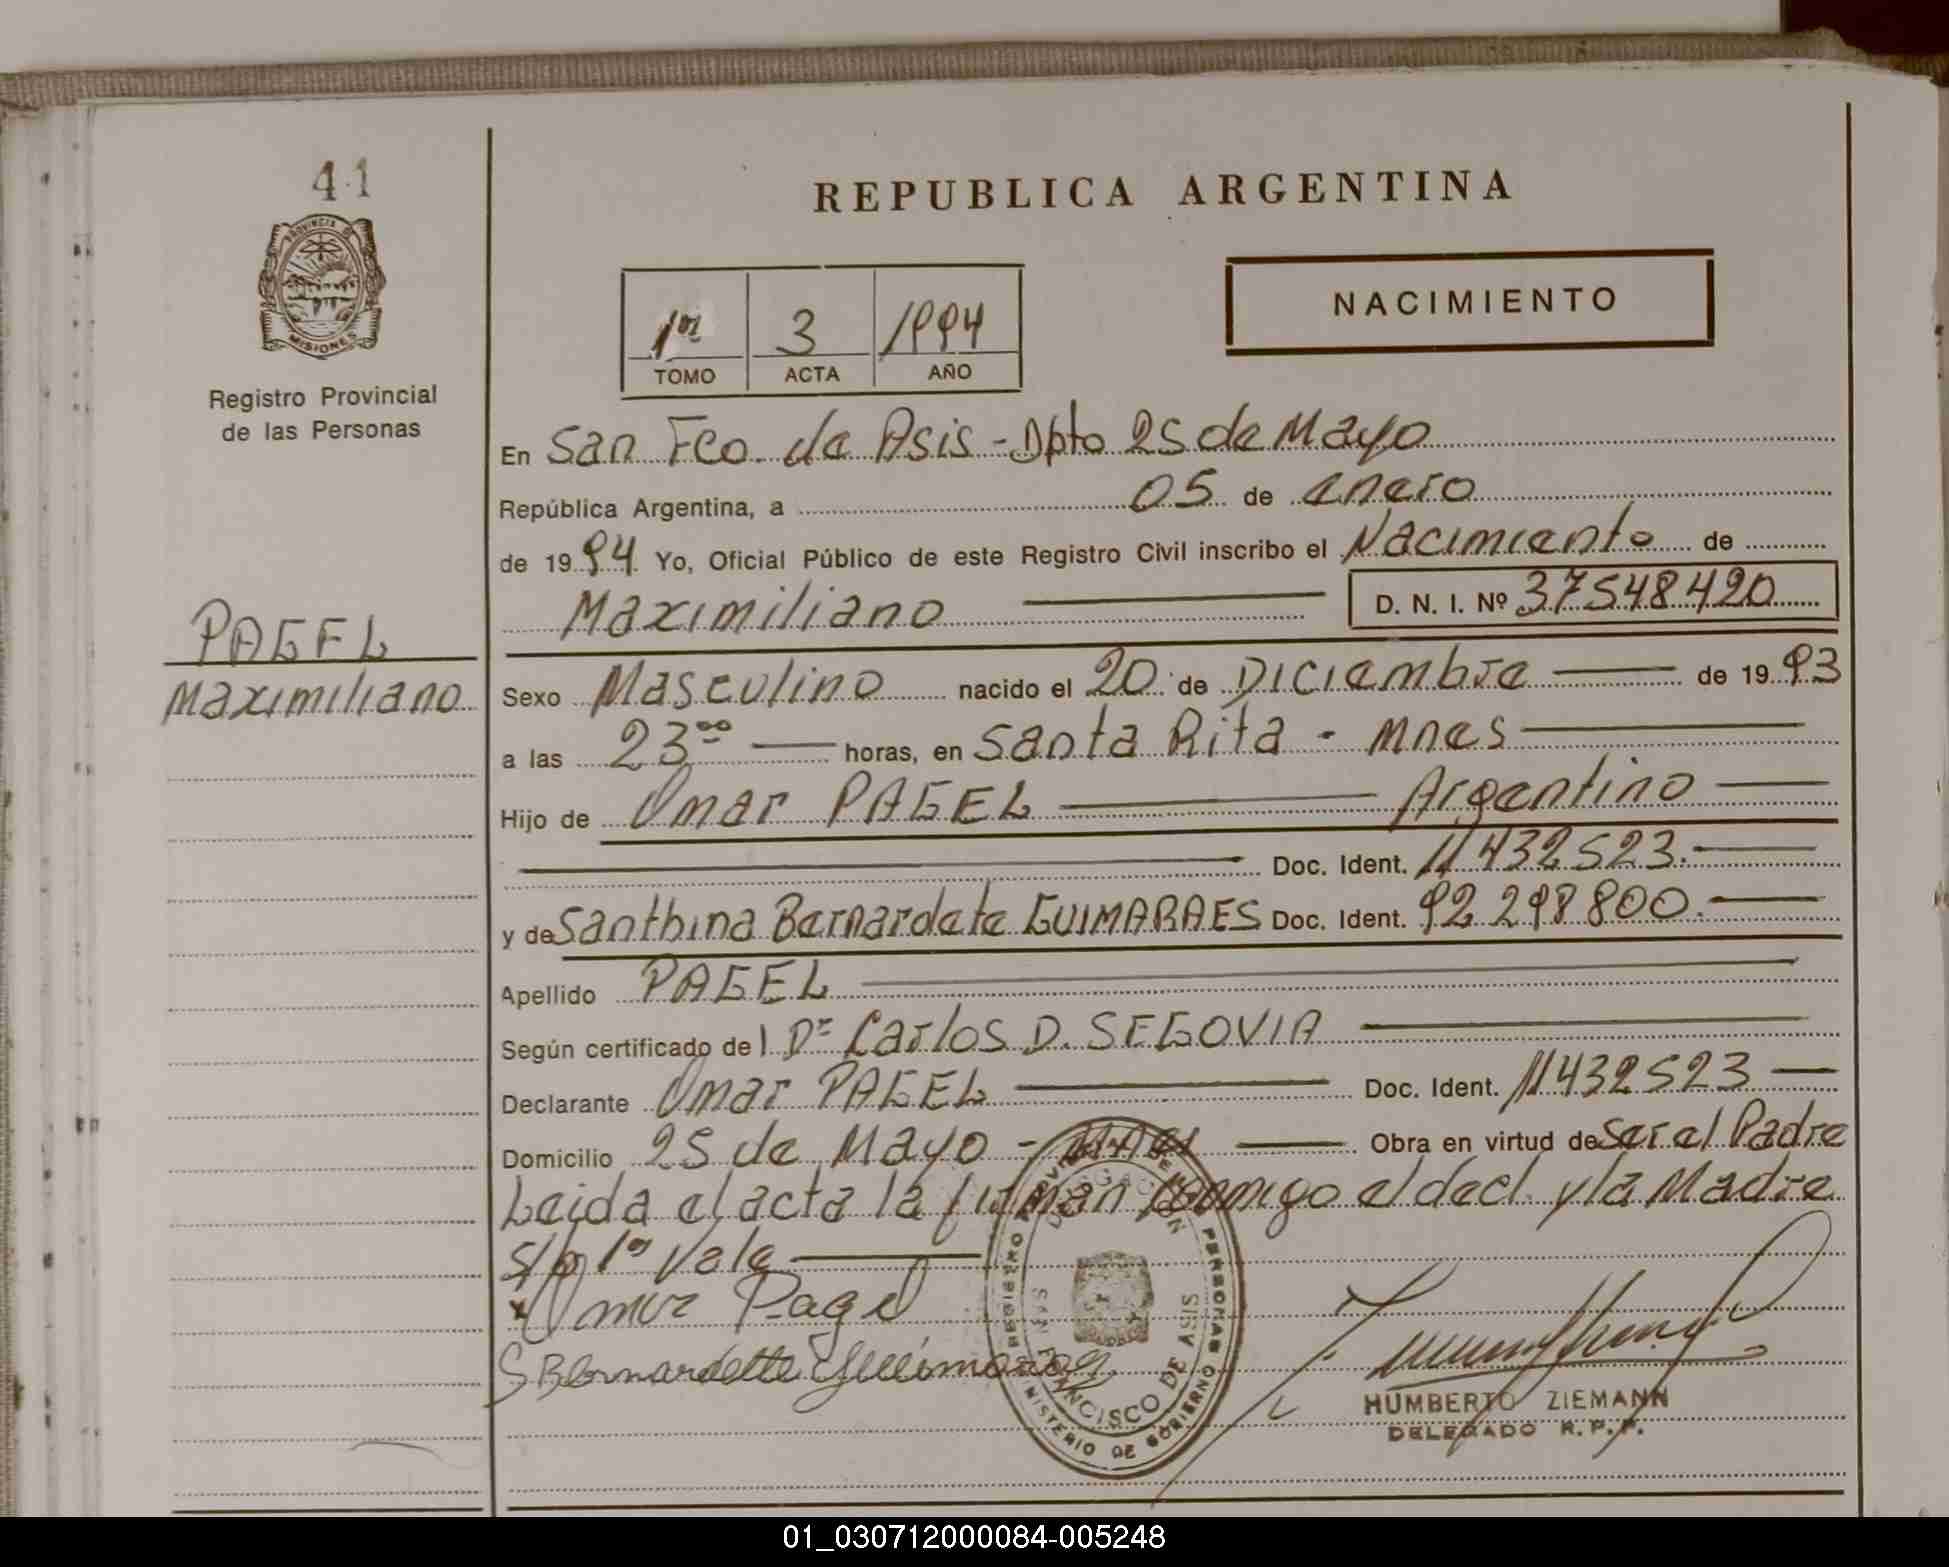 41
PROVINCIA DE
MISIONES
Registro Provincial
de las Personas
PAGEL
Maximiliano
REPUBLICA ARGENTINA
NACIMIENTO
1º 3 1994
TOMO ACTA AÑO
En San Fco. de Asis - Dpto 25 de Mayo
República Argentina, a 05 de enero
de 1994 Yo, Oficial Público de este Registro Civil inscribo el Nacimiento de
Maximiliano D. N. I. Nº 37548420
Sexo Masculino nacido el 20 de Diciembre de 1993
a las 23⁰⁰ horas, en Santa Rita - Mnes
Hijo de Omar PAGEL Argentino
Doc. Ident. 11432523.
y de Santhina Bernardete GUIMARAES Doc. Ident. 92298800.
Apellido PAGEL
Según certificado del Dr Carlos D. SEGOVIA
Declarante Omar PAGEL Doc. Ident. 11432523
Domicilio 25 de Mayo - Mnes Obra en virtud de Ser el Padre
Leida el acta la firman conmigo el decl. y la Madre
S/b 1º Vale
x Omar Pagel
S Bernardette Guimaraes
REGISTRO PROVINCIAL DE LAS PERSONAS
DELEGACION
SAN FRANCISCO DE ASIS
MINISTERIO DE GOBIERNO
HUMBERTO ZIEMANN
DELEGADO R.P.P.
01_030712000084-005248